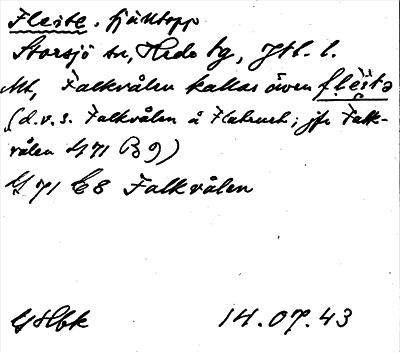 Fleite. fjälltopp
Storsjö sn, Hede tg, Jtl. l.
Mt, Falkvålen kallas även fleita
(d.v.s. Falkvålen å Flatruet; jfr Falk-
vålen 471 B9)
471 C8 Falkvålen
14.07.43